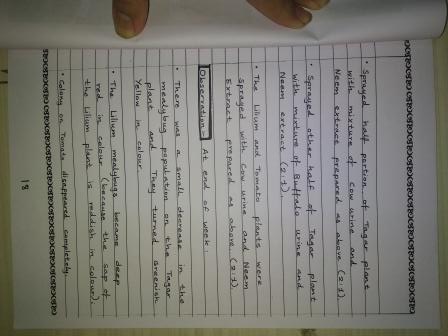 • Sprayed half portion of Tagar plant
with mixture of cow urine and
Neem extrace prepared as above (2:1).
• Sprayed other half of Tagar plant
with mixture of Buffalo urine and
Neem extract (2:1).
• The Lilium and Tomato plants were
sprayed with Cow urine and Neem
Extract prepared as above. (2:1)
Observation:- At end of week.
• There was a small decrease in the
mealybug population on the Tagar
plant and They turned Greenish
Yellow in colour.
• The Lilium mealybugs became deep
red in colour (because the sap of
the Lilium plant is reddish in colour).
• Colony on Tomato disappeared completely.
18